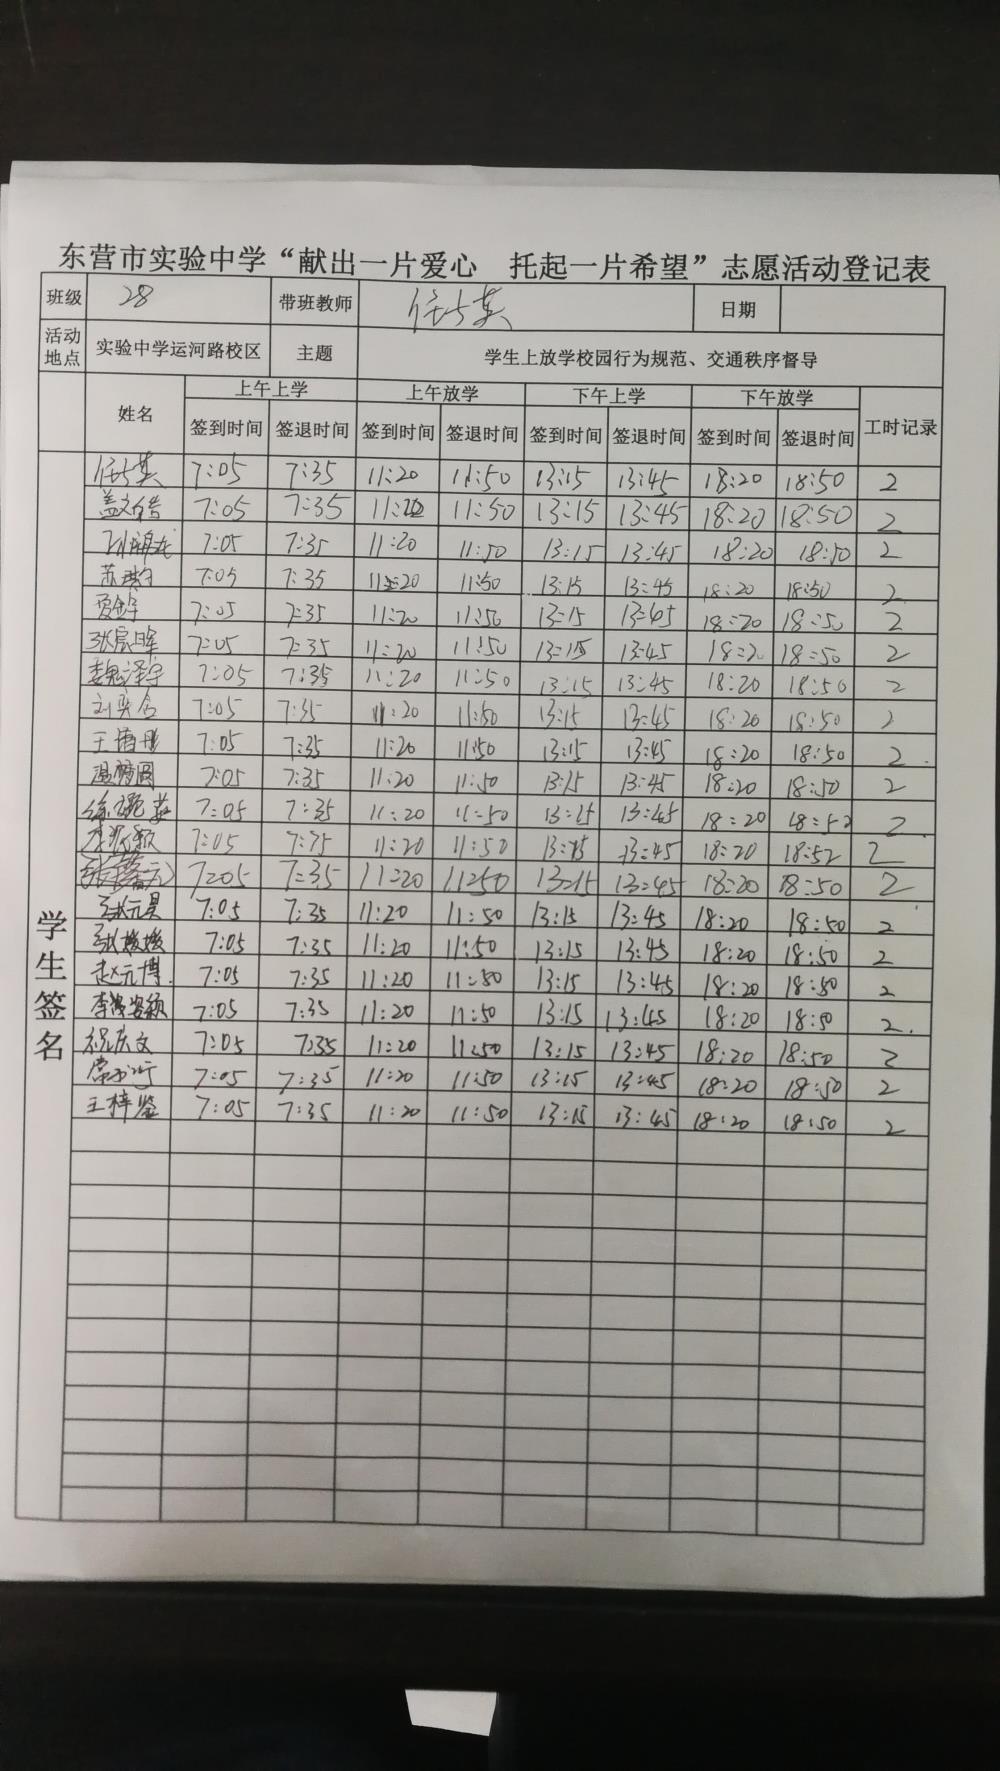 东营市实验中学“献出一片爱心 托起一片希望”志愿活动登记表
班级 28 带班教师 日期
活动地点 实验中学运河路校区 主题 学生上放学校园行为规范、交通秩序督导
姓名 上午上学 上午放学 下午上学 下午放学 工时记录
签到时间 签退时间 签到时间 签退时间 签到时间 签退时间 签到时间 签退时间
学生签名
7:05 7:35 11:20 11:50 13:15 13:45 18:20 18:50 2
7:05 7:35 11:20 11:50 13:15 13:45 18:20 18:50 2
7:05 7:35 11:20 11:50 13:15 13:45 18:20 18:50 2
7:05 7:35 11:20 11:50 13:15 13:45 18:20 18:50 2
7:05 7:35 11:20 11:50 13:15 13:45 18:20 18:50 2
张宸晖 7:05 7:35 11:20 11:50 13:15 13:45 18:20 18:50 2
魏泽宇 7:05 7:35 11:20 11:50 13:15 13:45 18:20 18:50 2
刘奕含 7:05 7:35 11:20 11:50 13:15 13:45 18:20 18:50 2
7:05 7:35 11:20 11:50 13:15 13:45 18:20 18:50 2
7:05 7:35 11:20 11:50 13:15 13:45 18:20 18:50 2
7:05 7:35 11:20 11:50 13:15 13:45 18:20 18:52 2
7:05 7:35 11:20 11:50 13:15 13:45 18:20 18:52 2
7:05 7:35 11:20 11:50 13:15 13:45 18:20 18:50 2
张元昊 7:05 7:35 11:20 11:50 13:15 13:45 18:20 18:50 2
张媛媛 7:05 7:35 11:20 11:50 13:15 13:45 18:20 18:50 2
赵元博 7:05 7:35 11:20 11:50 13:15 13:45 18:20 18:50 2
7:05 7:35 11:20 11:50 13:15 13:45 18:20 18:50 2
祝庆文 7:05 7:35 11:20 11:50 13:15 13:45 18:20 18:50 2
7:05 7:35 11:20 11:50 13:15 13:45 18:20 18:50 2
王梓鉴 7:05 7:35 11:20 11:50 13:15 13:45 18:20 18:50 2